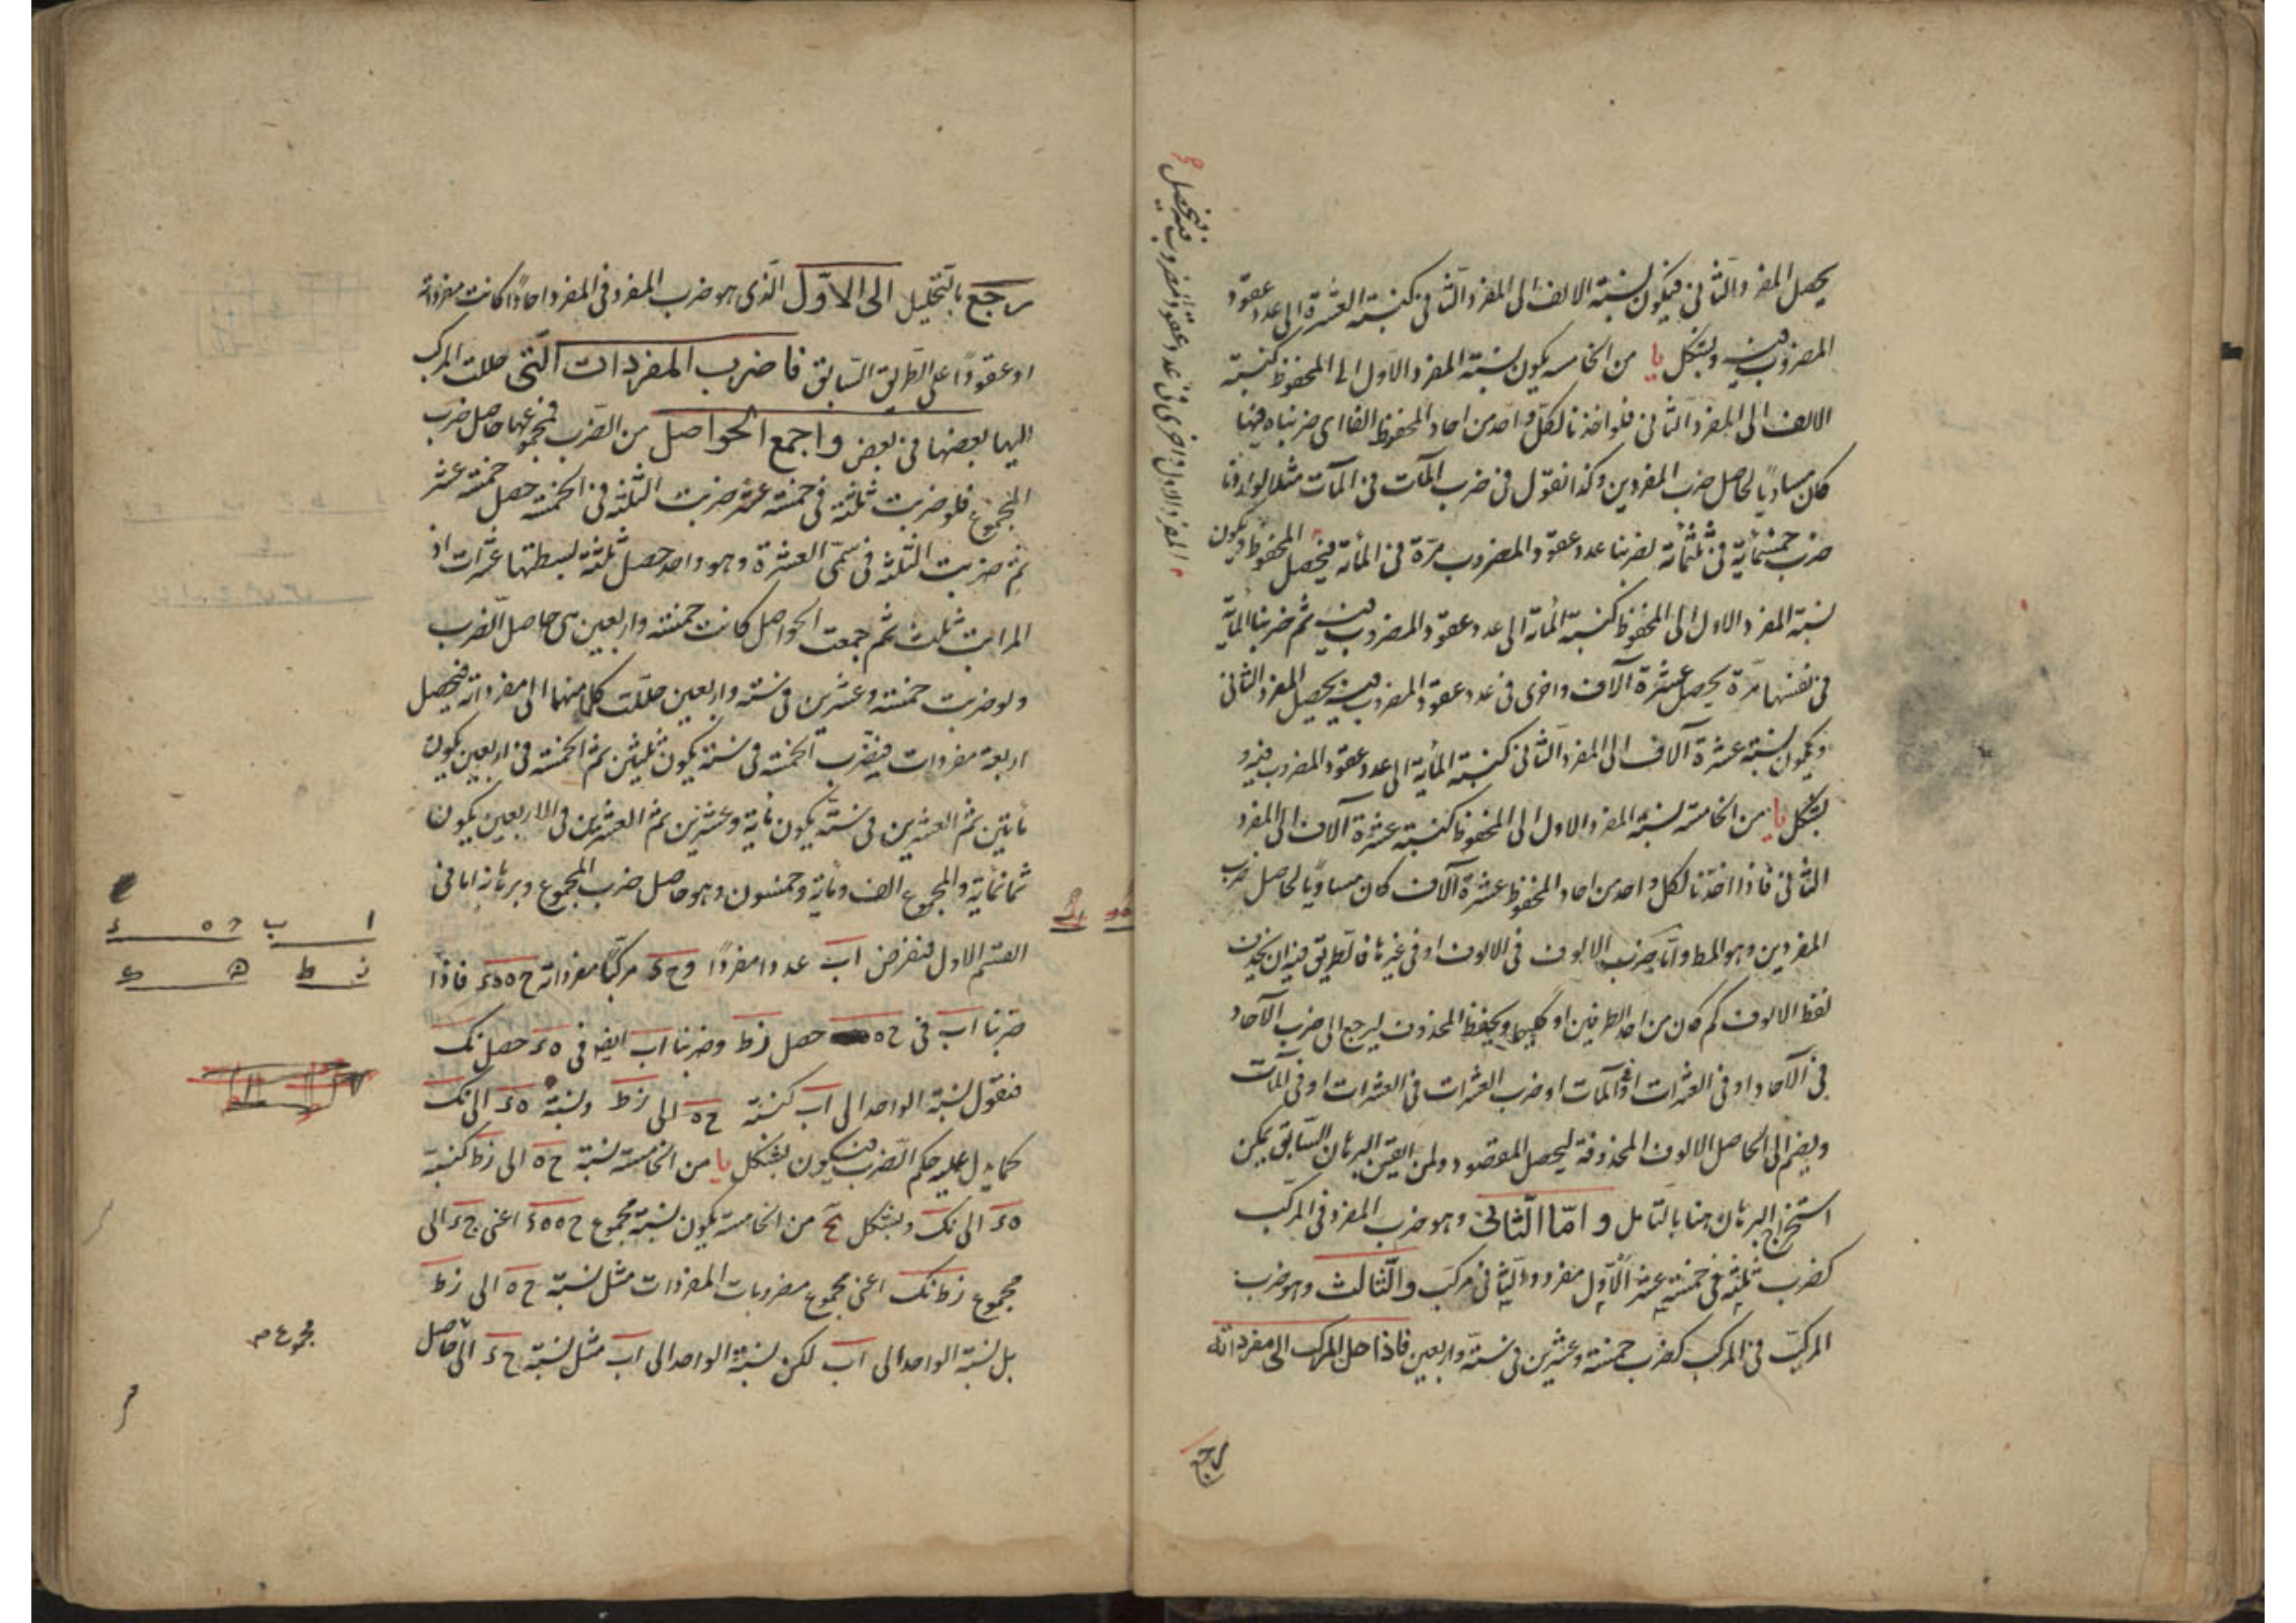 يحصل المفرد الثانى فيكون نسبة الالف الى المفرد الثانى كنسبة العشرة الى عدد عقود
المضروب فيه وبشكل يا من الخامسه يكون نسبة المفرد الاول الى المحفوظ كنسبة
الالف الى المفرد الثانى فلو اخذنا لكل واحد من احاد المحفوظ الفا اى ضربناه فيها
كان مساويا لحاصل ضرب المفردين وكذا نقول فى ضرب المآت فى المآت مثلا لو اردنا
ضرب خمسمائة فى ثلثمائة لضربنا عدد عقود المضروب مرة فى المائة فيحصل المحفوظ ويكون
نسبة المفرد الاول الى المحفوظ كنسبة المائة الى عدد عقود المضروب فيه ثم ضربنا المائة
فى نفسها مرة يحصل عشرة آلاف واخرى فى عدد عقود المضروب فيه يحصل المفرد الثانى
ويكون نسبة عشرة آلاف الى المفرد الثانى كنسبة المائة الى عدد عقود المضروب فيه و
بشكل يا من الخامسة نسبة المفرد الاول الى المحفوظ كنسبة عشرة آلاف الى المفرد
الثانى فاذا اخذنا لكل واحد من احاد المحفوظ عشرة آلاف كان مساويا لحاصل ضرب
المفردين وهو المط واما ضرب الالوف فى الالوف او فى غيرها فالطريق فيه ان يحذف
لفظ الالوف كم كان من احد الطرفين او كليهما ويحفظ المحذوف ليرجع الى ضرب الآحاد
فى الآحاد او فى العشرات او المآت او ضرب العشرات فى العشرات او فى المآت
ويضم الى الحاصل الالوف المحذوفة ليحصل المقصود ولمن اتقن البرهان السابق يمكن
استخراج البرهان هنا بالتامل واما الثانى وهو ضرب المفرد فى المركب
كضرب ثلثة فى خمسة عشر الاول مفرد والثانى مركب والثالث وهو ضرب
المركب فى المركب كضرب خمسة وعشرين فى ستة واربعين فاذا حل المركب الى مفرداته
رجع
المفرد الاول واخرى فى عدد عقود المضروب فيه فيحصل
رجع بالتحليل الى الاول الذى هو ضرب المفرد فى المفرد احادا كانت مفرداته
او عقودا على الطريق السابق فاضرب المفردات التى حللت المركب
اليها بعضها فى بعض واجمع الحواصل من الضرب فمجموعها حاصل ضرب
المجموع فلو ضربت ثلثة فى خمسة عشر ضربت الثلثة فى الخمسة حصل خمسة عشر
ثم ضربت الثلثة فى سمى العشرة وهو واحد حصل ثلثة لبسطتها عشرات اذ
المراتب ثلث ثم جمعت الحواصل كانت خمسة واربعين هى حاصل الضرب
ولو ضربت خمسة وعشرين فى ستة واربعين حللت كلا منهما الى مفرداته فيحصل
اربعة مفردات فيضرب الخمسة فى ستة يكون ثلثين ثم الخمسة فى اربعين يكون
مأتين ثم العشرين فى ستة يكون مأية وعشرين ثم العشرين فى الاربعين يكون
ثمانمأية والمجموع الف ومأية وخمسون وهو حاصل ضرب المجموع وبرهانه اما فى
القسم الاول فنفرض اب عددا مفردا و ح ء مركبا مفرداته ح ه ه ء فاذا
ضربنا اب فى ح ه حصل زط وضربنا اب ايضا فى ه ء حصل نك
فنقول نسبة الواحد الى اب كنسبة ح ه الى زط ونسبة ه ء الى نك
كما يدل عليه حكم الضرب فيكون بشكل يا من الخامسة نسبة ح ه الى زط كنسبة
ه ء الى نك وبشكل يج من الخامسة يكون نسبة مجموع ح ه ه ء اعنى ح ء الى
مجموع زط نك اعنى مجموع مضروبات المفردات مثل نسبة ح ه الى زط
بل نسبة الواحد الى اب لكن نسبة الواحد الى اب مثل نسبة ح ء الى حاصل
ا ب ح ه ء
ز ط
مجموع